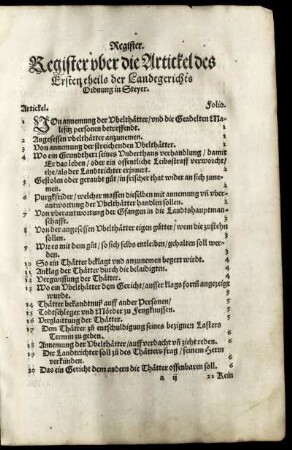 Register.
Register vber die Artickel des
Ersten theils der Landtgerichts
Ordnung in Steyer.
Artickel. Folio.
1 VOn annemung der Vbelthätter/vnd die Geadelten Ma-
lefitz personen betreffendt. 1
2 Angesessen vbelthätter anzunemen. 1
3 Von annemung der streichenden Vbelthätter. 1
4 Wo ein Grundtherr seines Vnderthans verhandlung/damit
Er das leben/oder ein offentliche Leibstraff verwürcht
he/als der Landtrichter erjnnert. 2
5 Gestolen oder geraubt gůt/in frischer that wider an sich zune-
men. 2
6 Purgkfrider/welcher massen dieselben mit annemung vn̄ vber-
antwortung der Vbelthätter handlen sollen. 2
7 Von vberantwortung der Gfangen in die Landtshauptman-
schafft. 2
8 Von der angesessen Vbelthätter eigen gůtter/wem die zůstehn
sollen. 2
9 Wie es mit dem gůt/so sich selbs entleiben/gehalten soll wer-
den. 3
10 So ein Thätter beklagt vnd anzunemen begert wirdt. 4
11 Anklag der Thätter durch die belaidigten. 4
12 Vergwissung der Thätter. 4
13 Wo ein Vbelthätter dem Gericht/ausser klags forms angezeigt
wurde. 5
14 Thätter bekandtnuß auff ander Personen/ 5
15 Todtschleger vnd Mörder zů Fengknussen. 5
16 Verglaittung der Thätter. 5
17 Dem Thätter zů entschuldigung seines bezignen Lasters
Termin zu geben. 6
18 Annemung der Vbelthätter/auff verdacht vn̄ zicht reden. 6
19 Der Landtrichter soll zů des Thätters frag/seinem Herrn
verkünden. 6
20 Das ein Gericht dem andern die Thätter offenbarn soll. 6
a ij 21 Kein